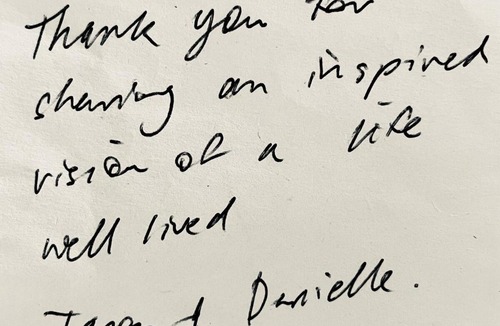 Thank you for
sharing an inspired
vision of a life
well lived
Danielle.